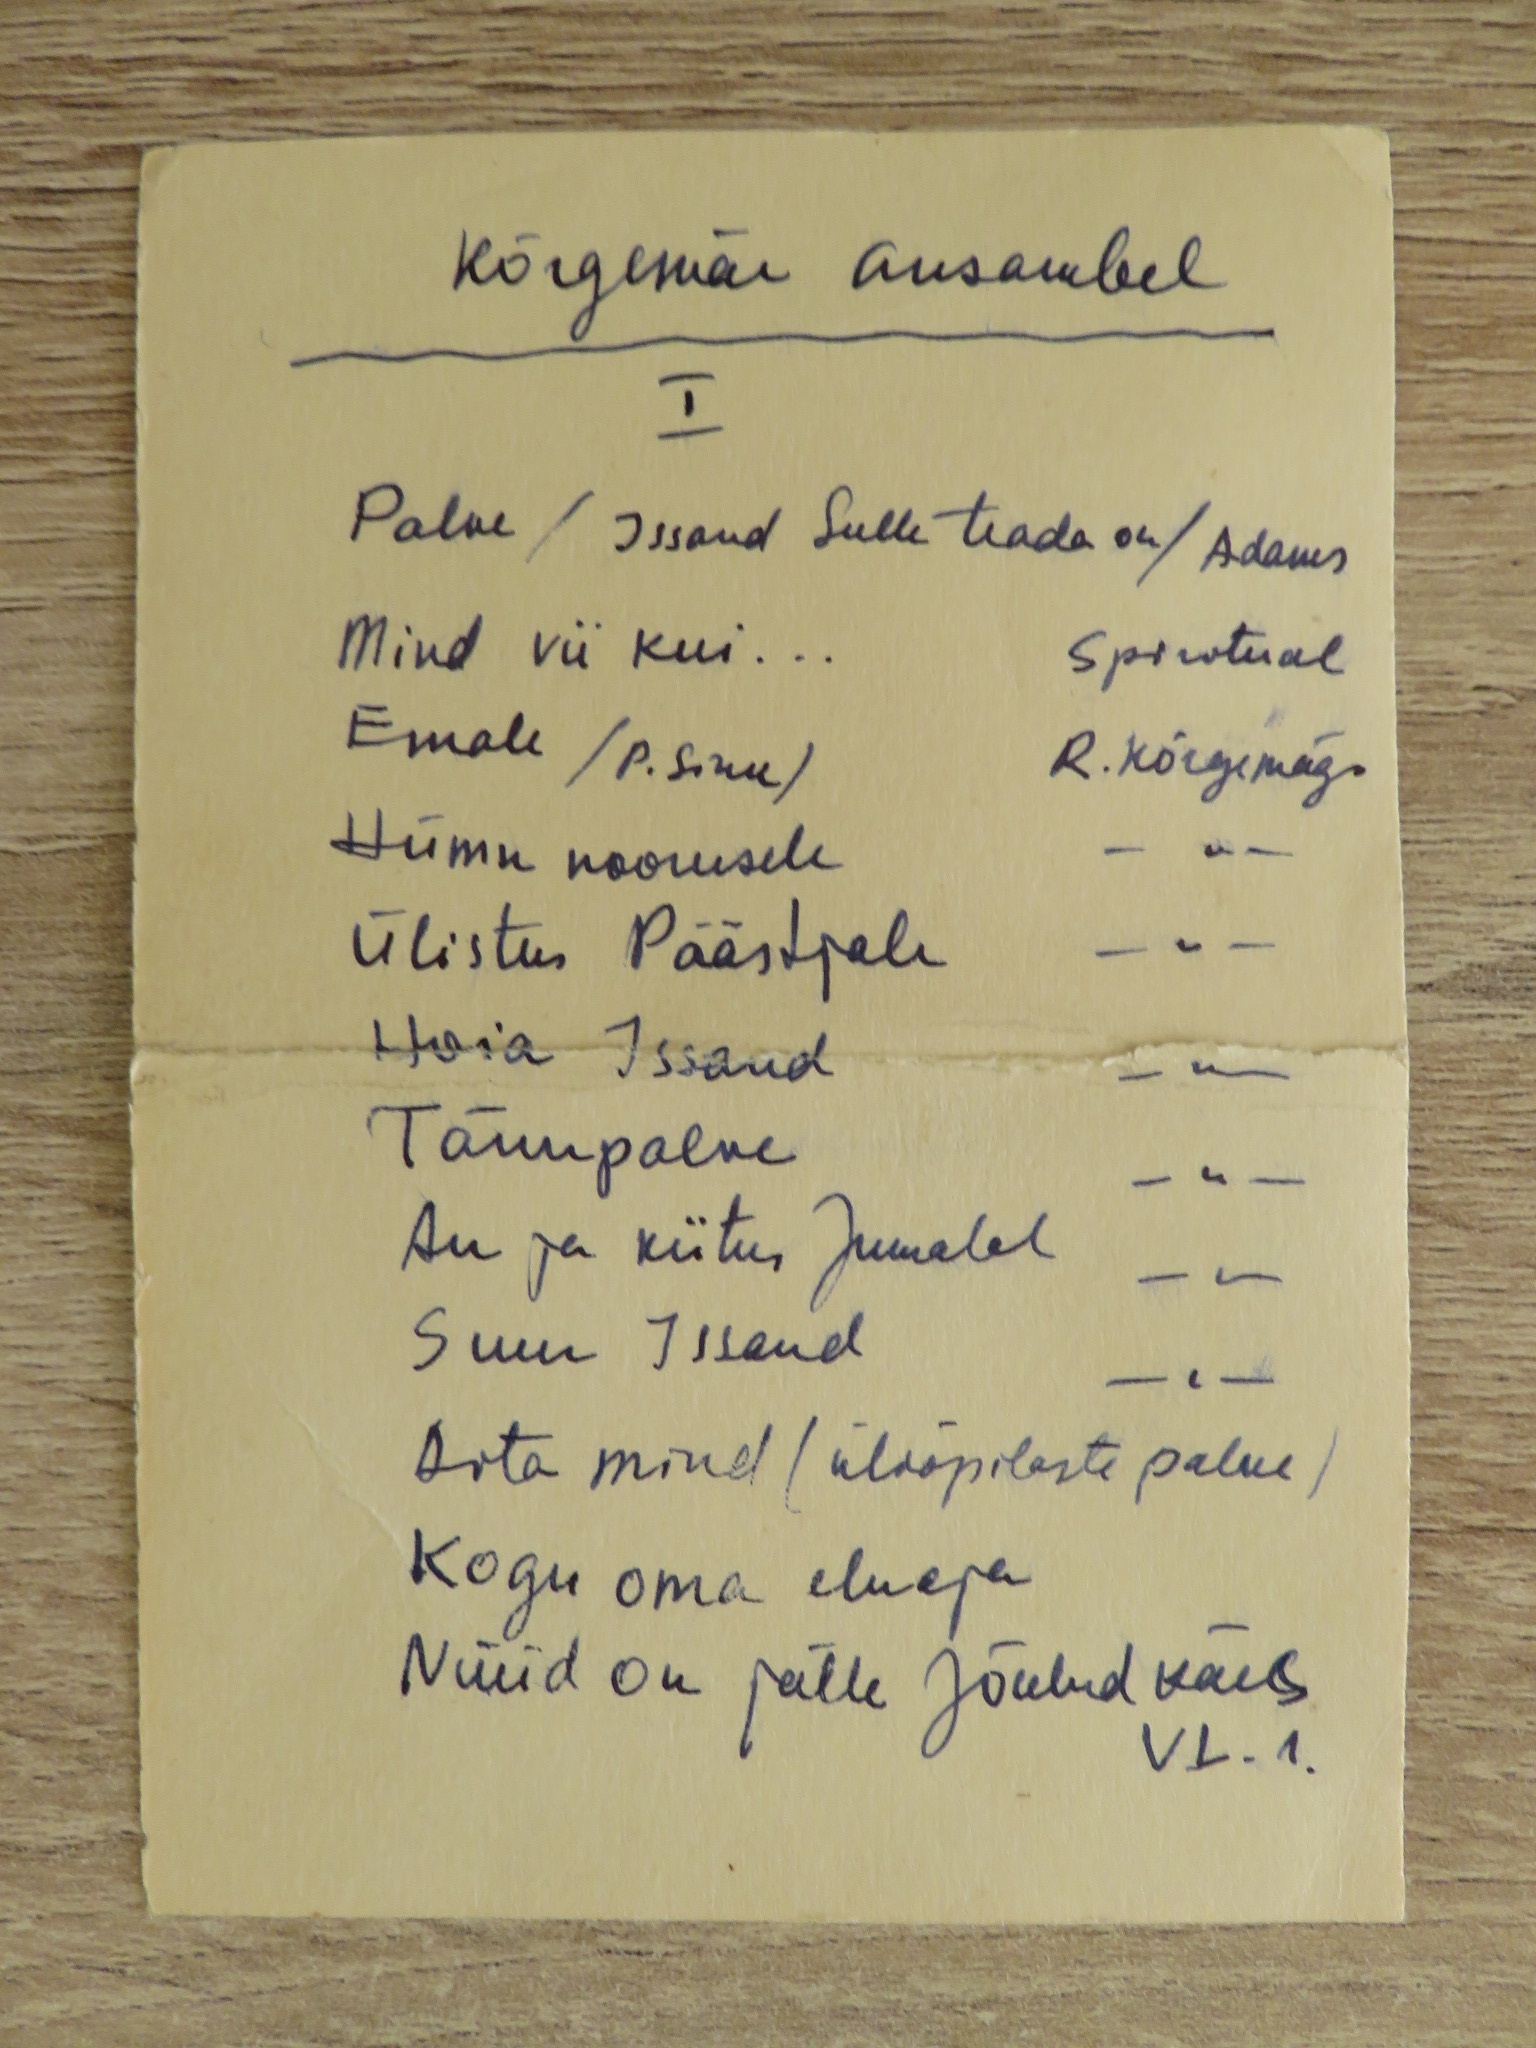 Kõrgemäe ansambel
I
Palve / Issand Sulle teada on / Adams
Mind vii kui... Spiritual
Emale /P. Sink/ R. Kõrgemäg.
Hümn noorusele — " —
Ülistus Päästjale — " —
Hoia Issand — " —
Tänupalve — " —
Au ja kiitus Jumalal — " —
Suur Issand — " —
Aita mind (üliõpilaste palve)
Kogu oma eluaja
Nüüd on jälle jõulud käes
VL - 1.